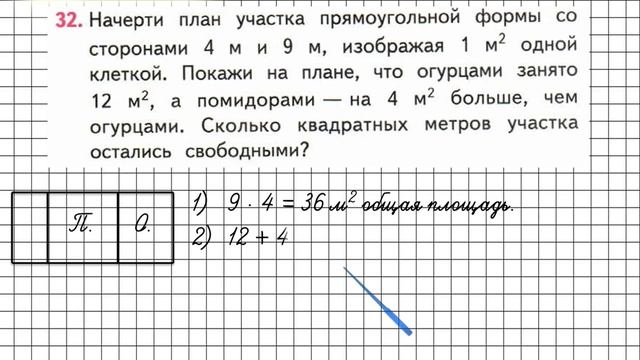 32. Начерти план участка прямоугольной формы со
сторонами 4 м и 9 м, изображая 1 м² одной
клеткой. Покажи на плане, что огурцами занято
12 м², а помидорами — на 4 м² больше, чем
огурцами. Сколько квадратных метров участка
остались свободными?
П. О.
1) 9 · 4 = 36 м² общая площадь.
2) 12 + 4